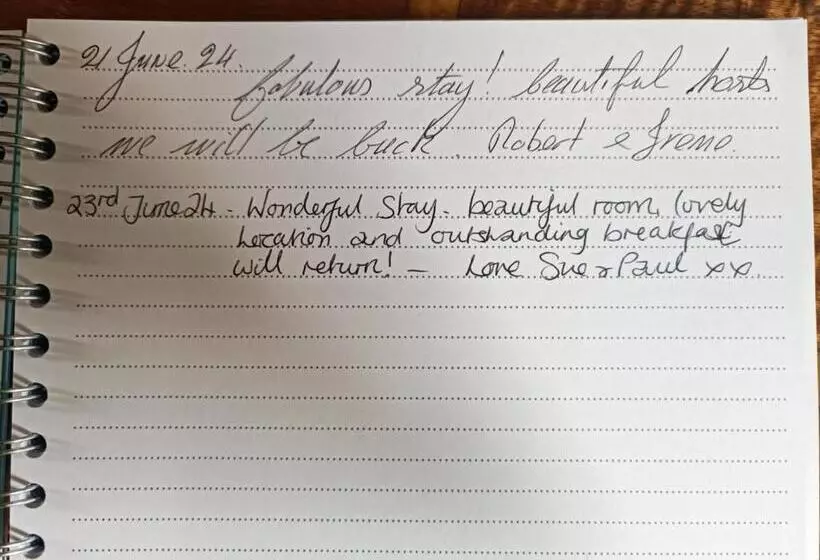 21 June. 24.
fabulous stay! beautiful hosts
we will be back. Robert & Irene.
23rd June 24 - Wonderful Stay - beautiful room, lovely
Location and outstanding breakfast
will return! - Love Sue & Paul xx.